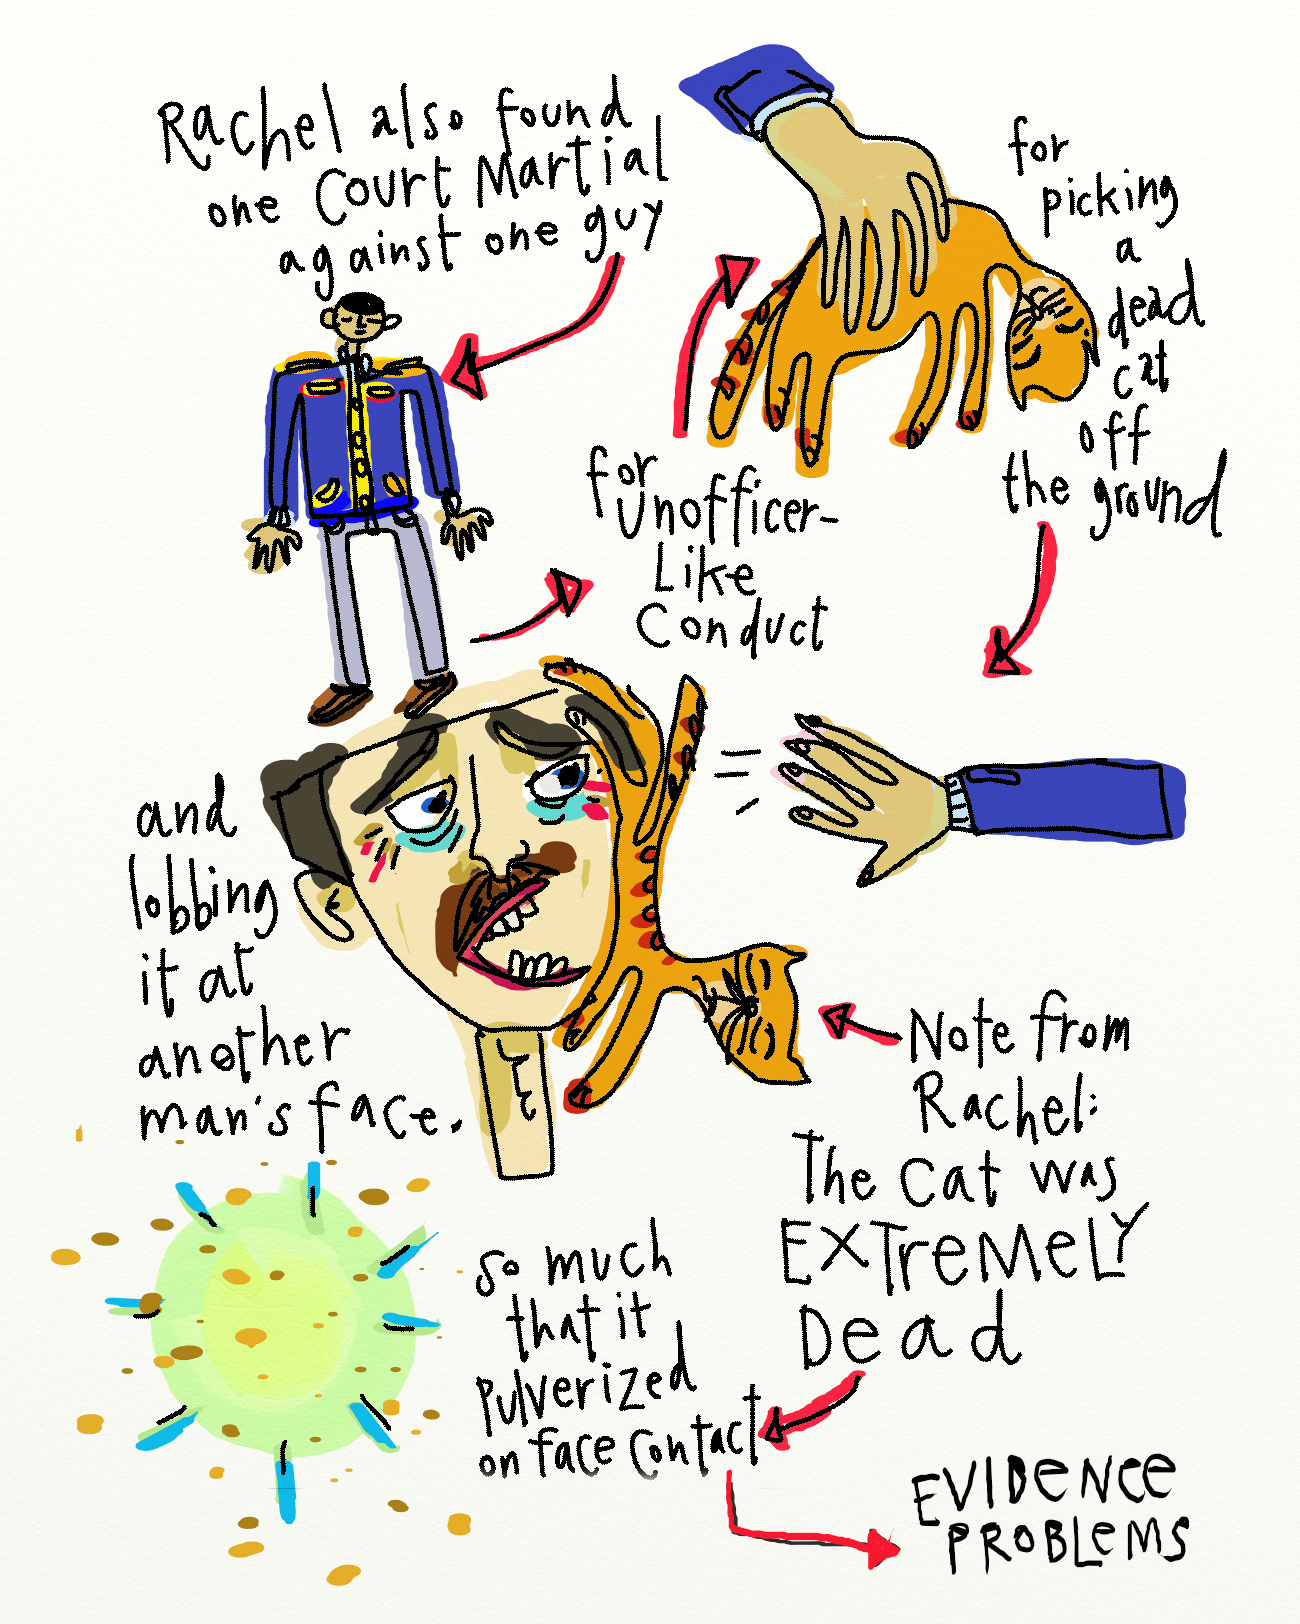 Rachel also found
one Court Martial
against one guy
for
Unofficer-
Like
Conduct
for
picking
a
dead
cat
off
the ground
and
lobbing
it at
another
man's face.
Note from
Rachel:
The Cat was
EXTremeLY
Dead
so much
that it
Pulverized
on face contact
EVIDeNCe
PROBLeMS